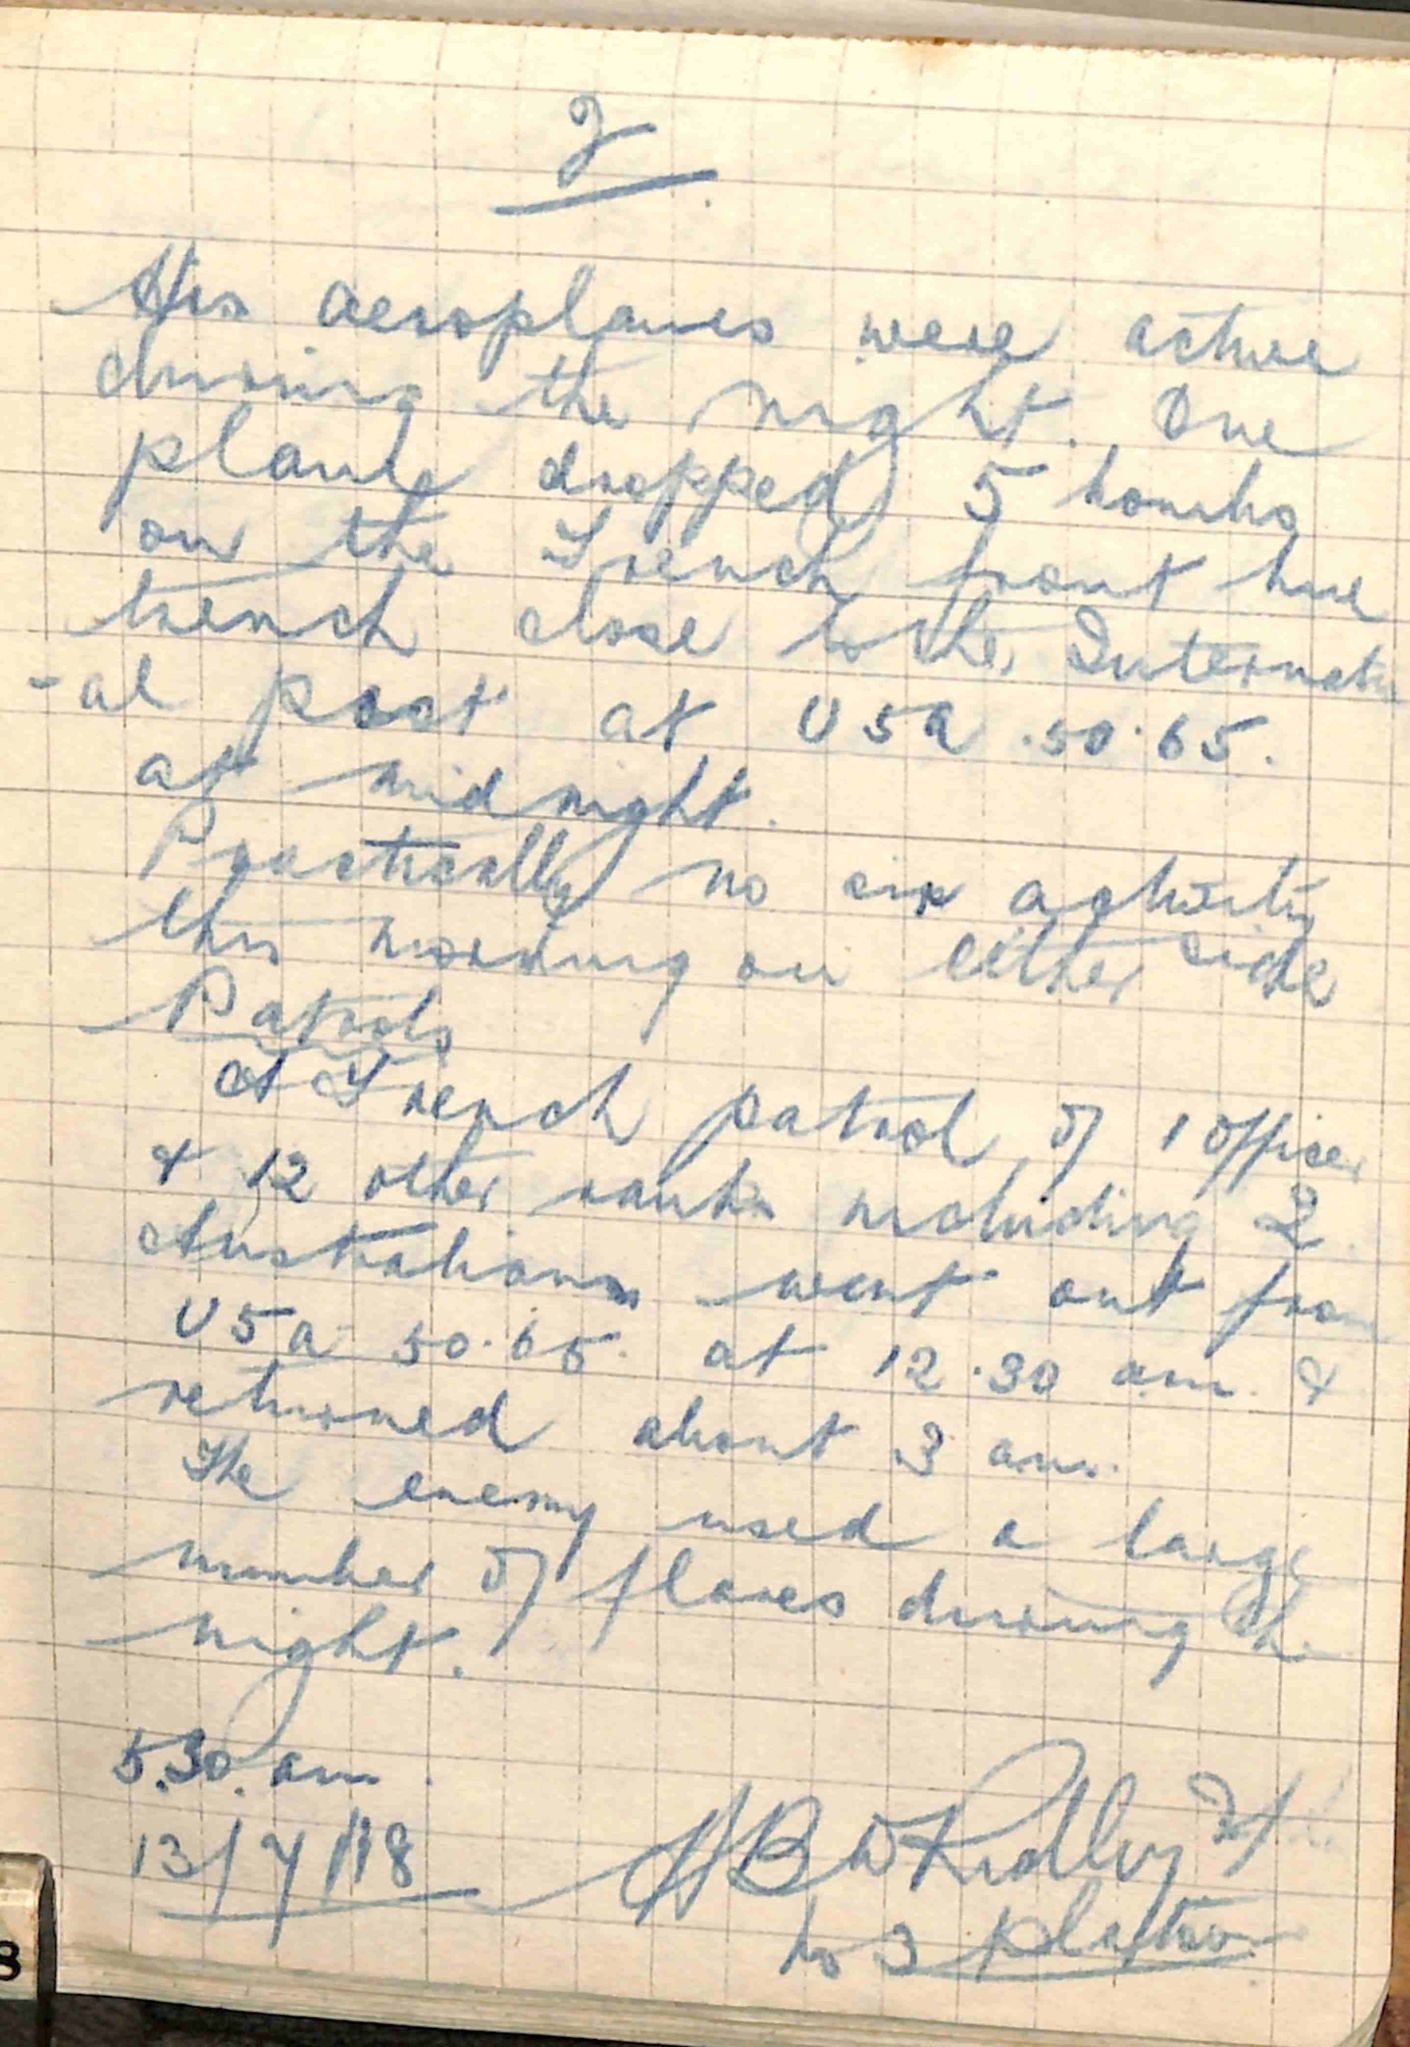 2
His aeroplanes were active
during the night. One
plane dropped 5 bombs
on the French front line
trench close to the Internatn
-al post at U5a .50.65.
at midnight.
Practically no air activity
this morning on either side
Patrols
A French patrol of 1 officer
& 12 other ranks including 2
Australians went out from
U5a 50.65. at 12.30 am. &
returned about 3 am.
The enemy used a large
number of flares during the
night.
5.30. am.
13/7/18
Ridley
No 3 Platoon
8